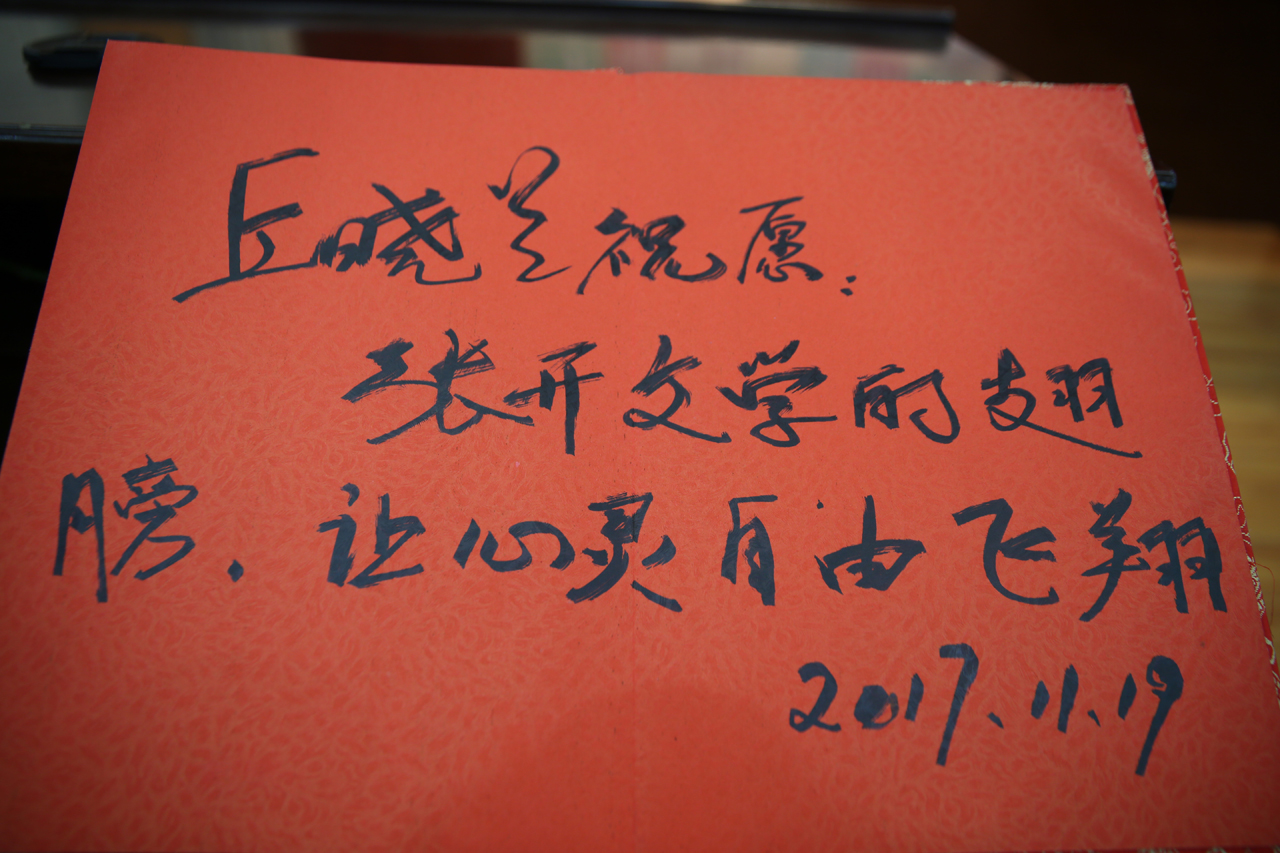 丘晓兰祝愿：
张开文学的翅
膀，让心灵自由飞翔
2017.11.19